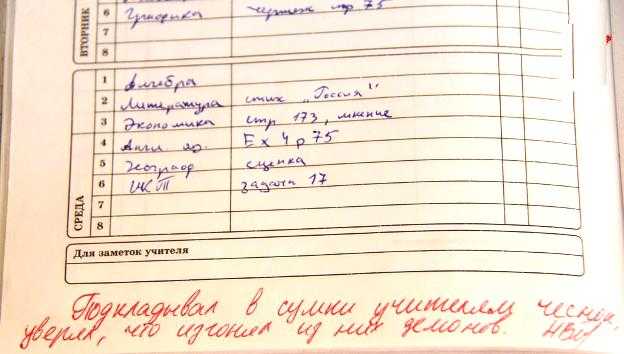 ВТОРНИК
6 чертеж стр 75
7
8
СРЕДА
1 Алгебра
2 Литература стих „Россия"
3 Экономика стр 173, мнение
4 Англ яз. Ex 4 p 75
5 Географ сценка
6 ИКТ задачи 17
7
8
Для заметок учителя
Подкладывал в сумки учителям чеснок,
уверял, что изгонял из них демонов.